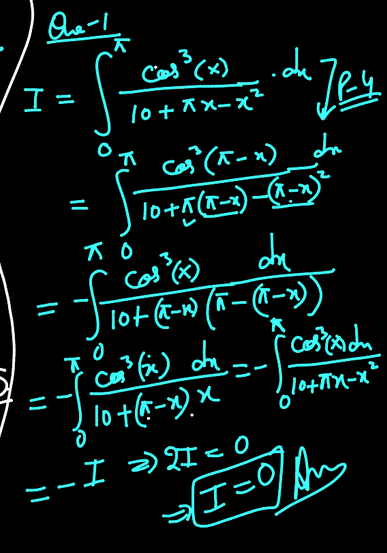 Que-1
I = ∫₀^π cos³(x) / (10 + πx - x²) . dx ] P-4
= ∫₀^π cos³(π-x) dx / (10 + π(π-x) - (π-x)²)
= -∫₀^π cos³(x) dx / (10 + (π-x)(π-(π-x)))
= -∫₀^π cos³(x) dx / (10 + (π-x).x) = -∫₀^π cos³(x) dx / (10 + πx - x²)
= -I ⇒ 2I = 0
⇒ I = 0 Ans